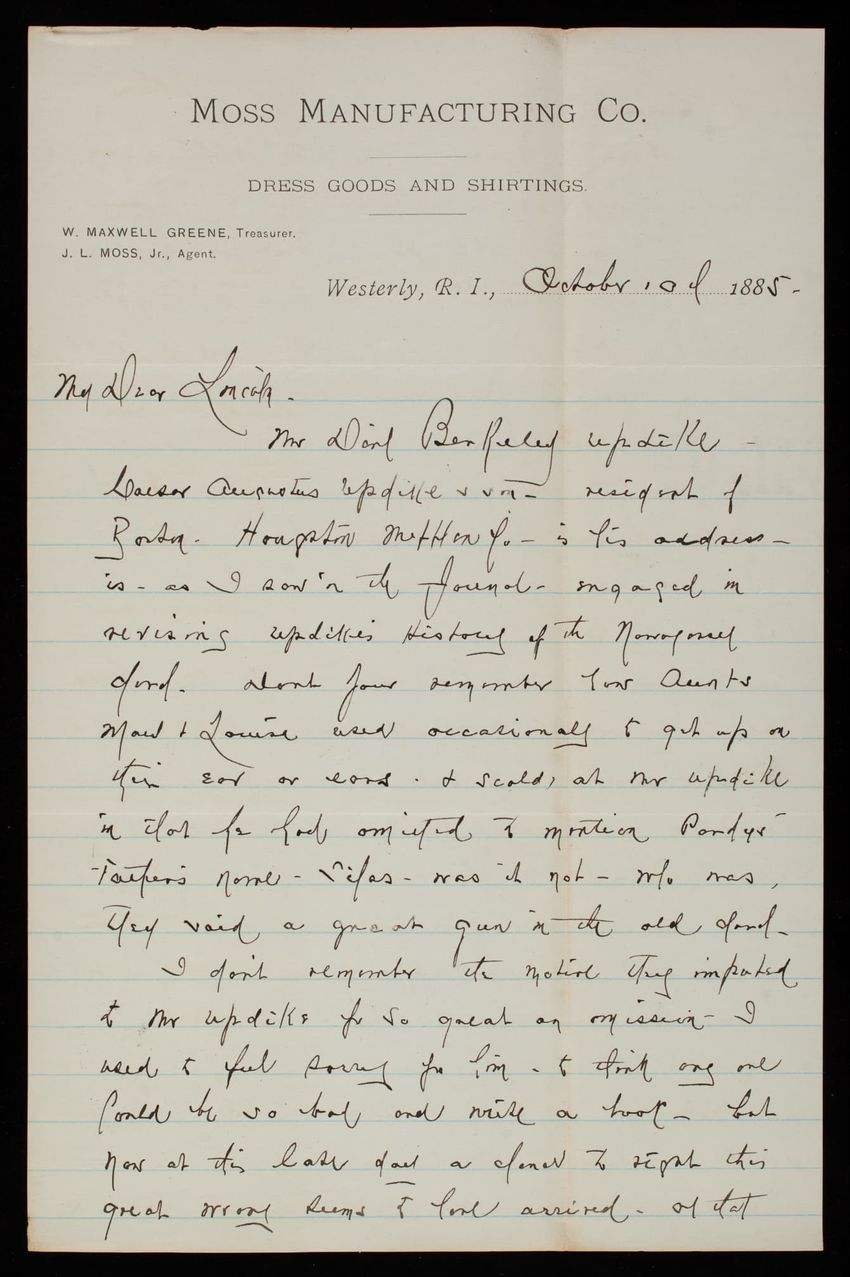 MOSS MANUFACTURING CO.
DRESS GOODS AND SHIRTINGS.
W. MAXWELL GREENE, Treasurer.
J. L. MOSS, Jr., Agent.
Westerly, R. I., October 10 1885-
My Dear Lincoln.
Mr Danl Berkeley Updike -
Caesar Augustus Updike s son - resident of
Boston. Houghton Mifflin Co - is his address -
is - as I saw in the Journal - engaged in
revising Updike's History of the Narragansett
Don't you remember how Aunts
Mary & Louise used occasionally to get up on
their ear or ears - & scold, at Mr Updike
in that he had omitted to mention Pardys
Father's name - Silas - was it not - who was,
they said a great gun in the old
I don't remember the motive they imputed
to Mr Updike for so great an omission - I
used to feel sorry for him - to think any one
could be so bad and write a book - but
now at this late day a chance to right this
great wrong seems to have arrived - so that